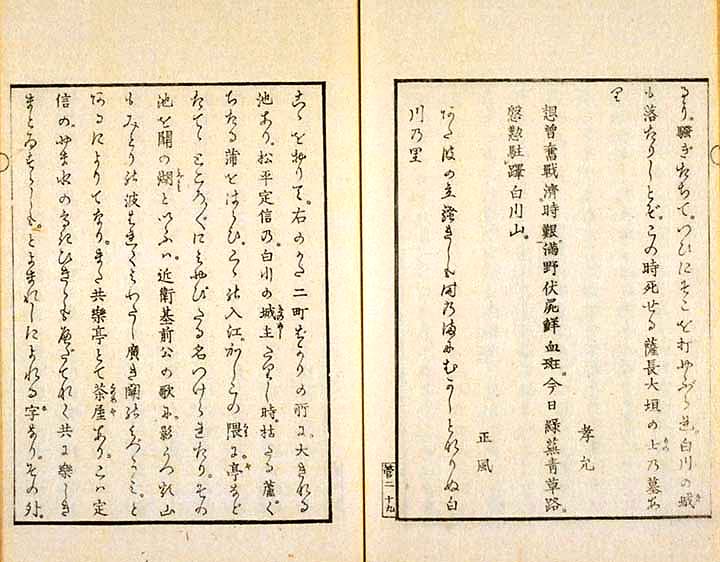 るり。騒ぎたちて。つひにそこを打やぶられ。白川の城
も落たりしとぞ。この時死せる薩長大垣の士乃墓あ
り
孝允
想曾奮戰濟時艱。滿野伏屍鮮血斑。今日綠蕪青草路。
慇懃駐蹕白川山。
正風
あだ波の立きしも関乃にむかしとなりぬ白
川乃里
巻二 十九
こゝを出て。右のかた二町ばかりの所に。大きなる
池あり。松平定信乃。白川の城主たりし時。枯たる蘆く
ちたる蒲をはらひ。こゝの入江。かしこの隈に。亭など
たてゝ。ところ〴〵にみやびたる名つけられたり。その
池を関の湖といふは。近衛基前公の歌に。影うつす山
もみどりの波みわたし廣き関のみづうみ。と
あるによりてなり。また共樂亭とて茶屋あり。こは定
信の。やま水の高きひきゝもなく共に樂しき
まどゐすらしも。とよまれしによれる字なり。その外。